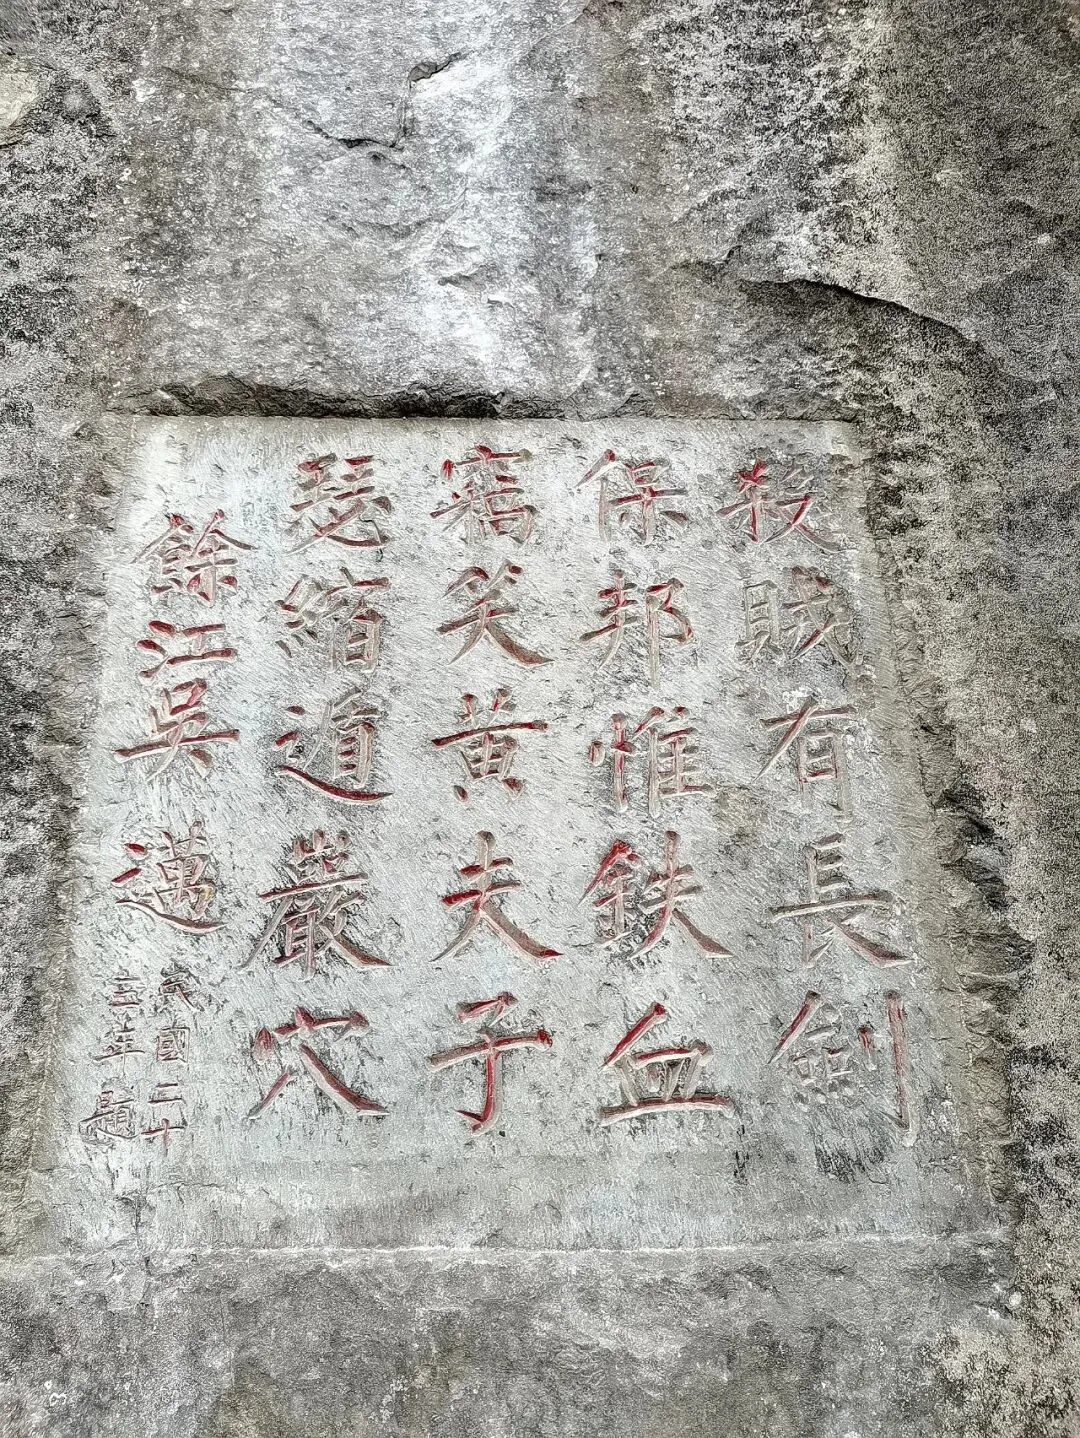 殺賊有長劍
保邦惟鉄血
竊笑黃夫子
瑟縮遁巖穴
餘江吳邁
民國二十
年題